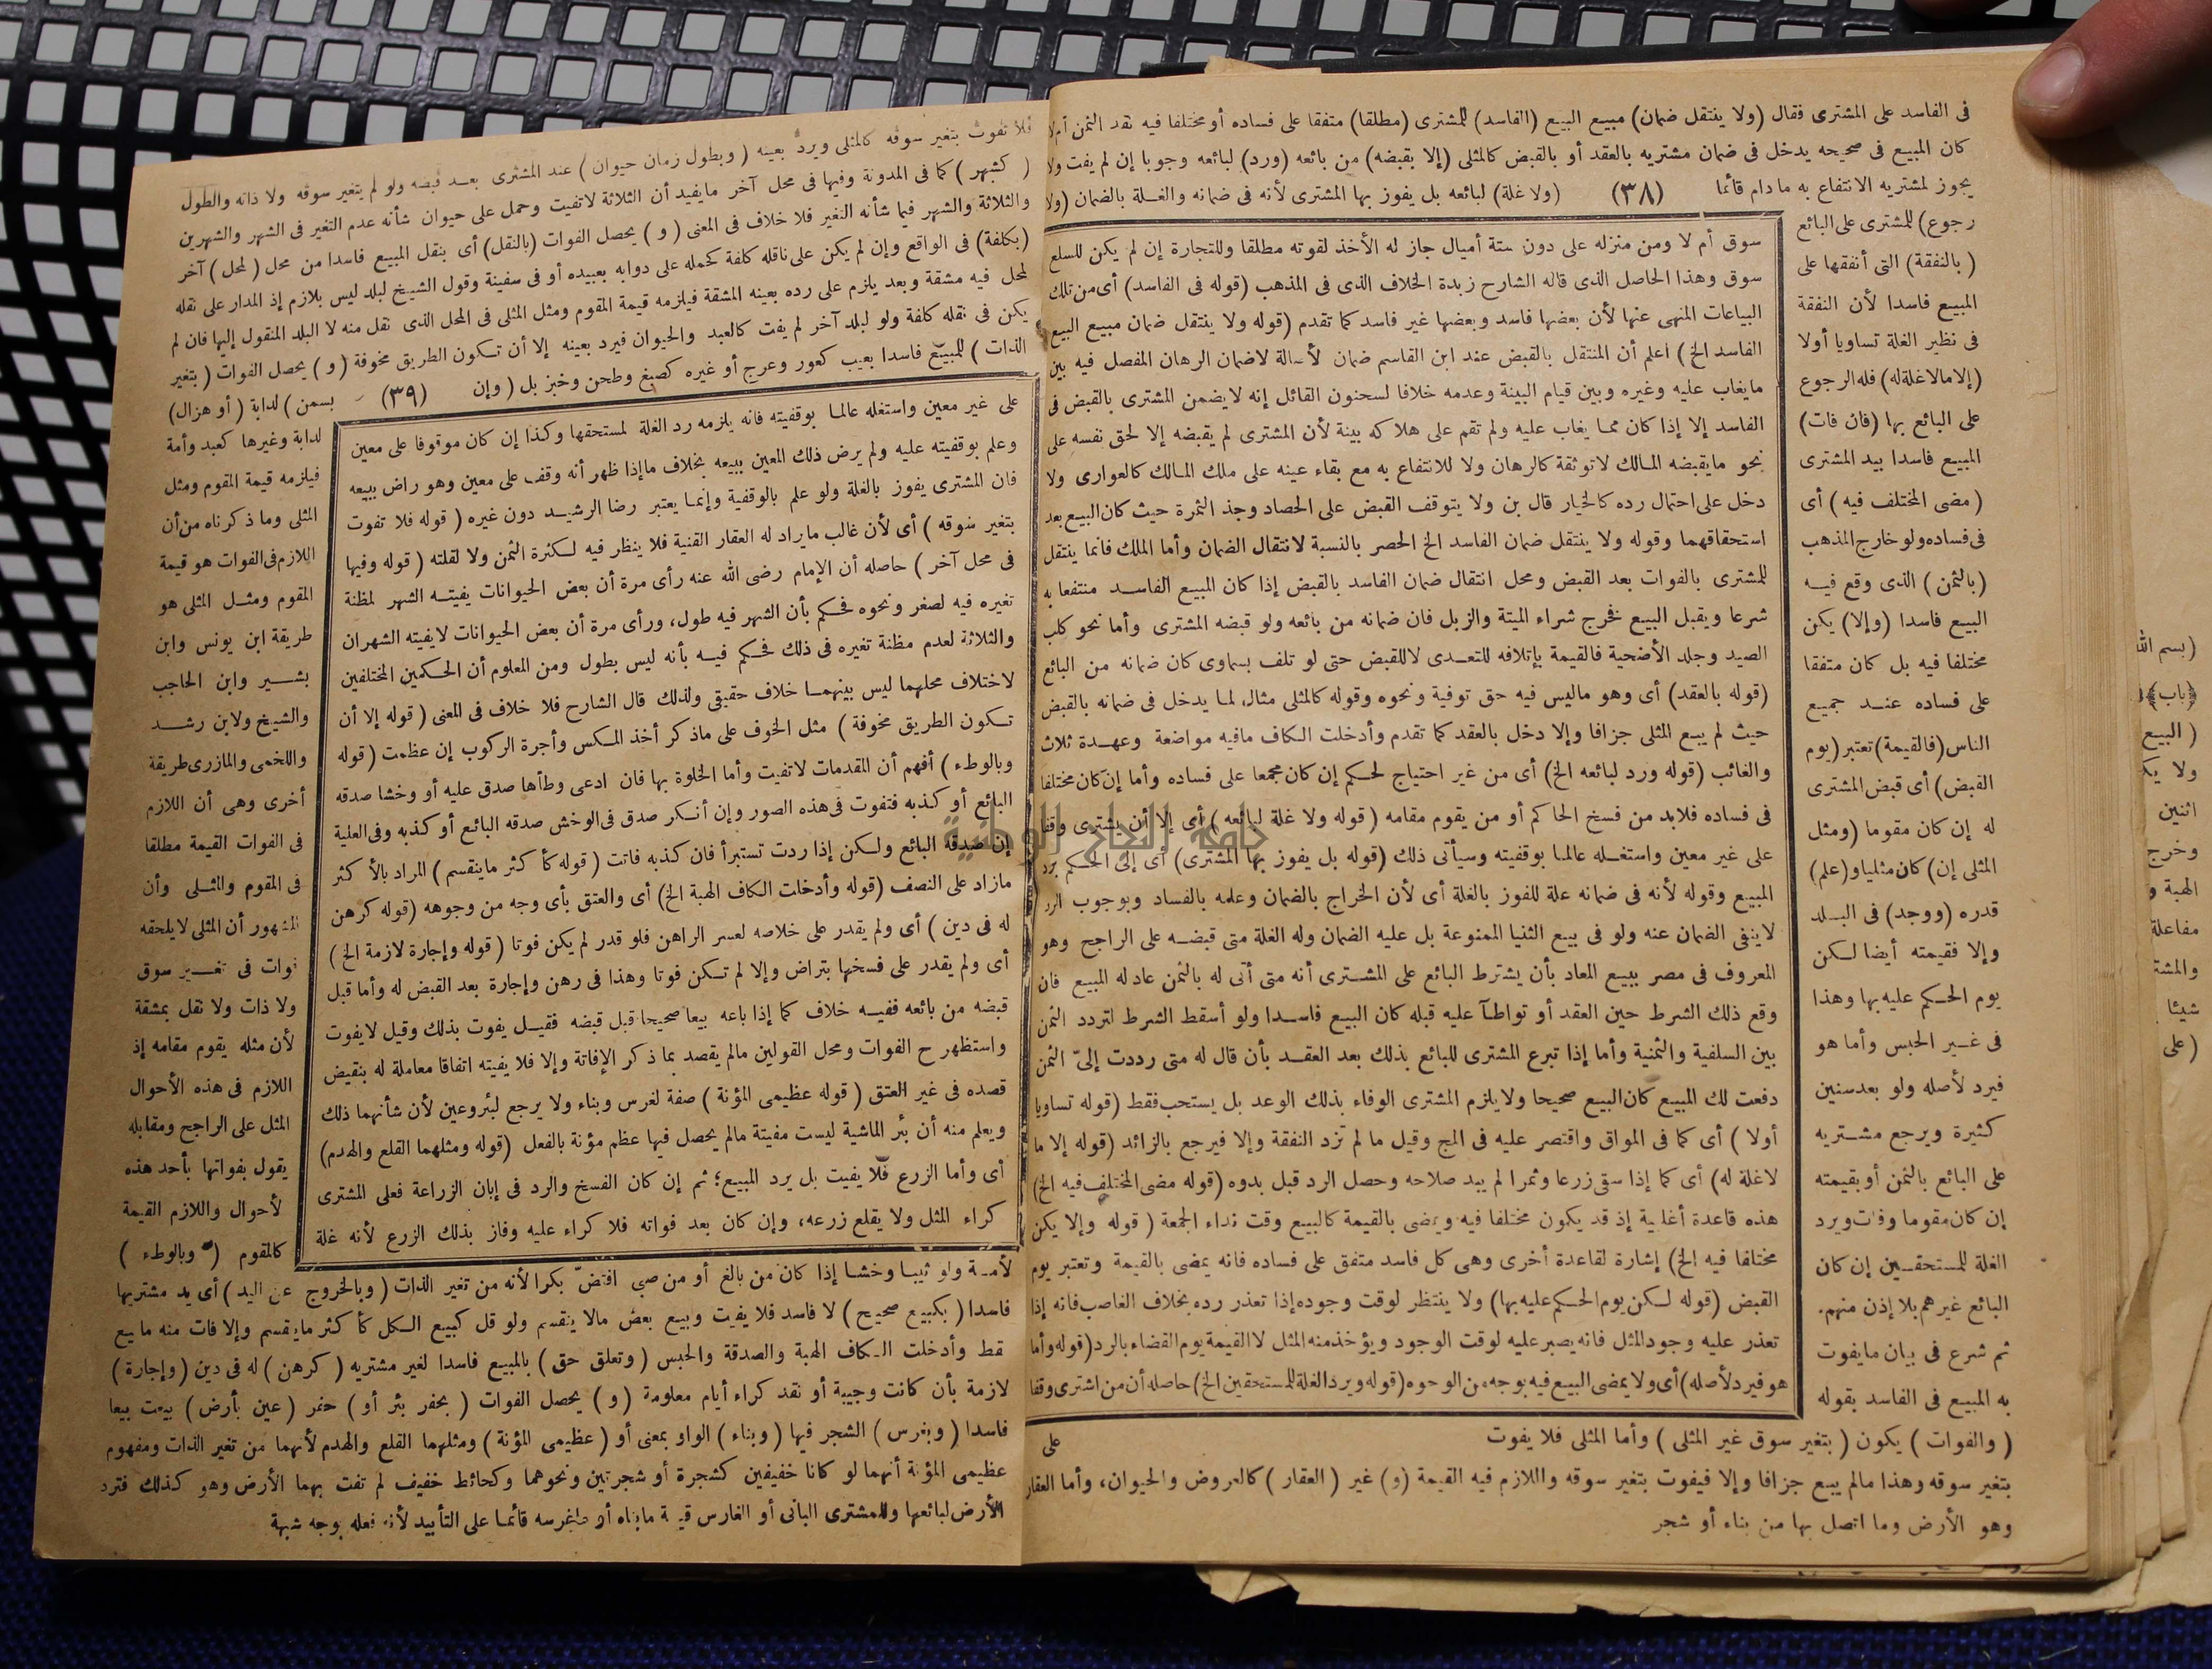 فى الفاسد على المشترى فقال (ولا ينتقل ضمان) مبيع البيع (الفاسد) للمشترى (مطلقا) متفقا على فساده أو مختلفا فيه نقد الثمن أم لا
كان المبيع فى صحيحه يدخل فى ضمان مشتريه بالعقد أو بالقبض كالمثلى (إلا بقبضه) من بائعه (ورد) لبائعه وجوبا إن لم يفت ولا
يجوز لمشتريه الانتفاع به مادام قائما (٣٨) (ولا غلة) لبائعه بل يفوز بها المشترى لأنه فى ضمانه والغلة بالضمان (ولا
رجوع) للمشترى على البائع
(بالنفقة) التى أنفقها على
المبيع فاسدا لأن النفقة
فى نظير الغلة تساويا أولا
(إلا مالا غلة له) فله الرجوع
على البائع بها (فان فات)
المبيع فاسدا بيد المشترى
(مضى المختلف فيه) أى
فى فساده ولو خارج المذهب
(بالثمن) الذى وقع فيه
البيع فاسدا (وإلا) يكن
مختلفا فيه بل كان متفقا
على فساده عند جميع
الناس (فالقيمة) تعتبر (يوم
القبض) أى قبض المشترى
له إن كان مقوما (ومثل
المثلى إن) كان مثليا و (علم)
قدره (ووجد) فى البلد
وإلا فقيمته أيضا لكن
يوم الحكم عليه بها وهذا
فى غير الحبس وأما هو
فيرد لأصله ولو بعد سنين
كثيرة ويرجع مشتريه
على البائع بالثمن أو بقيمته
إن كان مقوما وفات ويرد
الغلة للمستحقين إن كان
البائع غيرهم بلا إذن منهم.
ثم شرع فى بيان مايفوت
به المبيع فى الفاسد بقوله
(والفوات) يكون (بتغير سوق غير المثلى) وأما المثلى فلا يفوت
بتغير سوقه وهذا مالم يبع جزافا وإلا فيفوت بتغير سوقه واللازم فيه القيمة (و) غير (العقار) كالعروض والحيوان، وأما العقار
وهو الأرض وما اتصل بها من بناء أو شجر
سوق أم لا ومن منزله على دون ستة أميال جاز له الأخذ لقوته مطلقا وللتجارة إن لم يكن للسلع
سوق وهذا الحاصل الذى قاله الشارح زبدة الخلاف الذى فى المذهب (قوله فى الفاسد) أى من تلك
البياعات المنهى عنها لأن بعضها فاسد وبعضها غير فاسد كما تقدم (قوله ولا ينتقل ضمان مبيع البيع
الفاسد الخ) اعلم أن المنتقل بالقبض عند ابن القاسم ضمان لأصالة لاضمان الرهان المفصل فيه بين
مايغاب عليه وغيره وبين قيام البينة وعدمه خلافا لسحنون القائل إنه لايضمن المشترى بالقبض فى
الفاسد إلا إذا كان مما يغاب عليه ولم تقم على هلاكه بينة لأن المشترى لم يقبضه إلا لحق نفسه على
نحو مايقبضه المالك لاتوثقة كالرهان ولا للانتفاع به مع بقاء عينه على ملك المالك كالعوارى ولا
دخل على احتمال رده كالخيار قال بن ولا يتوقف القبض على الحصاد وجذ الثمرة حيث كان البيع بعد
استحقاقهما وقوله ولا ينتقل ضمان الفاسد الخ الحصر بالنسبة لانتقال الضمان وأما الملك فانما ينتقل
للمشترى بالفوات بعد القبض ومحل انتقال ضمان الفاسد بالقبض إذا كان المبيع الفاسد منتفعا به
شرعا ويقبل البيع فخرج شراء الميتة والزبل فان ضمانه من بائعه ولو قبضه المشترى وأما نحو كلب
الصيد وجلد الأضحية فالقيمة بإتلافه للتعدى لاللقبض حتى لو تلف بسماوى كان ضمانه من البائع
(قوله بالعقد) أى وهو ماليس فيه حق توفية ونحوه وقوله كالمثلى مثال لما يدخل فى ضمانه بالقبض
حيث لم يبع المثلى جزافا وإلا دخل بالعقد كما تقدم وأدخلت الكاف مافيه مواضعة وعهدة ثلاث
والغائب (قوله ورد لبائعه الخ) أى من غير احتياج لحكم إن كان مجمعا على فساده وأما إن كان مختلفا
فى فساده فلابد من فسخ الحاكم أو من يقوم مقامه (قوله ولا غلة لبائعه) أى إلا أن يشترى وقفا
على غير معين واستغله عالما بوقفيته وسيأتى ذلك (قوله بل يفوز بها المشترى) أى إلى الحكم برد
المبيع وقوله لأنه فى ضمانه علة للفوز بالغلة أى لأن الخراج بالضمان وعلمه بالفساد وبوجوب الرد
لاينفى الضمان عنه ولو فى بيع الثنيا الممنوعة بل عليه الضمان وله الغلة متى قبضه على الراجح وهو
المعروف فى مصر ببيع المعاد بأن يشترط البائع على المشترى أنه متى أتى له بالثمن عاد له المبيع فان
وقع ذلك الشرط حين العقد أو تواطآ عليه قبله كان البيع فاسدا ولو أسقط الشرط لتردد الثمن
بين السلفية والثمنية وأما إذا تبرع المشترى للبائع بذلك بعد العقد بأن قال له متى رددت إلىّ الثمن
دفعت لك المبيع كان البيع صحيحا ولا يلزم المشترى الوفاء بذلك الوعد بل يستحب فقط (قوله تساويا
أولا) أى كما فى المواق واقتصر عليه فى المج وقيل ما لم تزد النفقة وإلا فيرجع بالزائد (قوله إلا ما
لاغلة له) أى كما إذا سقى زرعا وثمرا لم يبد صلاحه وحصل الرد قبل بدوه (قوله مضى المختلف فيه الخ)
هذه قاعدة أغلبية إذ قد يكون مختلفا فيه ويمضى بالقيمة كالبيع وقت نداء الجمعة (قوله وإلا يكن
مختلفا فيه الخ) إشارة لقاعدة أخرى وهى كل فاسد متفق على فساده فانه يمضى بالقيمة وتعتبر يوم
القبض (قوله لكن يوم الحكم عليه بها) ولا ينتظر لوقت وجوده إذا تعذر رده بخلاف الغاصب فانه إذا
تعذر عليه وجود المثل فانه يصبر عليه لوقت الوجود ويؤخذ منه المثل لا القيمة يوم القضاء بالرد (قوله وأما
هو فيرد لأصله) أى ولا يمضى البيع فيه بوجه من الوجوه (قوله ويرد الغلة للمستحقين الخ) حاصله أن من اشترى وقفا
على
فلا تفوت بتغير سوقه كالمثلى ويرد بعينه (وبطول زمان حيوان) عند المشترى بعد قبضه ولو لم يتغير سوقه ولا ذاته والطول
(كشهر) كما فى المدونة وفيها فى محل آخر مايفيد أن الثلاثة لاتفيت وحمل على حيوان شأنه عدم التغير فى الشهر والشهرين
والثلاثة والشهر فيما شأنه التغير فلا خلاف فى المعنى (و) يحصل الفوات (بالنقل) أى بنقل المبيع فاسدا من محل (لمحل) آخر
(بكلفة) فى الواقع وإن لم يكن على ناقله كلفة كحمله على دوابه بعبيده أو فى سفينة وقول الشيخ لبلد ليس بلازم إذ المدار على نقله
لمحل فيه مشقة وبعد يلزم على رده بعينه المشقة فيلزمه قيمة المقوم ومثل المثلى فى المحل الذى نقل منه لا البلد المنقول إليها فان لم
يكن فى نقله كلفة ولو لبلد آخر لم يفت كالعبد والحيوان فيرد بعينه إلا أن تكون الطريق مخوفة (و) يحصل الفوات (بتغير
الذات) للمبيع فاسدا بعيب كعور وعرج أو غيره كصبغ وطحن وخبز بل (وإن (٣٩) بسمن) لدابة (أو هزال)
لدابة وغيرها كعبد وأمة
فيلزمه قيمة المقوم ومثل
المثلى وما ذكرناه من أن
اللازم فى الفوات هو قيمة
المقوم ومثل المثلى هو
طريقة ابن يونس وابن
بشير وابن الحاجب
والشيخ ولابن رشد
واللخمى والمازرى طريقة
أخرى وهى أن اللازم
فى الفوات القيمة مطلقا
فى المقوم والمثلى وأن
المشهور أن المثلى لايلحقه
فوات فى تغير سوق
ولا ذات ولا نقل بمشقة
لأن مثله يقوم مقامه إذ
اللازم فى هذه الأحوال
المثل على الراجح ومقابله
يقول بفواتها بأحد هذه
لأحوال واللازم القيمة
كالمقوم (وبالوطء)
لأمة ولو ثيبا وخشا إذا كان من بالغ أو من صبى افتض بكرا لأنه من تغير الذات (وبالخروج عن اليد) أى يد مشتريها
فاسدا (بكبيع صحيح) لا فاسد فلا يفيت وبيع بعض مالا ينقسم ولو قل كبيع الكل كأكثر ماينقسم وإلا فات منه مابيع
فقط وأدخلت الكاف الهبة والصدقة والحبس (وتعلق حق) بالمبيع فاسدا لغير مشتريه (كرهن) له فى دين (وإجارة)
لازمة بأن كانت وجيبة أو نقد كراء أيام معلومة (و) يحصل الفوات (بحفر بئر أو) حفر (عين بأرض) بيعت بيعا
فاسدا (وبغرس) الشجر فيها (وبناء) الواو بمعنى أو (عظيمى المؤنة) ومثلهما القلع والهدم لأنهما من تغير الذات ومفهوم
عظيمى المؤنة أنهما لو كانا خفيفين كشجرة أو شجرتين ونحوهما وكحائط خفيف لم تفت بهما الأرض وهو كذلك فترد
الأرض لبائعها وللمشترى البانى أو الغارس قيمة مابناه أو ماغرسه قائما على التأبيد لأنه فعله بوجه شبهة
على غير معين واستغله عالما بوقفيته فانه يلزمه رد الغلة لمستحقها وكذا إن كان موقوفا على معين
وعلم بوقفيته عليه ولم يرض ذلك المعين ببيعه بخلاف ما إذا ظهر أنه وقف على معين وهو راض ببيعه
فان المشترى يفوز بالغلة ولو علم بالوقفية وإنما يعتبر رضا الرشيد دون غيره (قوله فلا تفوت
بتغير سوقه) أى لأن غالب مايراد له العقار القنية فلا ينظر فيه لكثرة الثمن ولا لقلته (قوله وفيها
فى محل آخر) حاصله أن الإمام رضى الله عنه رأى مرة أن بعض الحيوانات يفيته الشهر لمظنة
تغيره فيه لصغر ونحوه فحكم بأن الشهر فيه طول، ورأى مرة أن بعض الحيوانات لايفيته الشهران
والثلاثة لعدم مظنة تغيره فى ذلك فحكم فيه بأنه ليس بطول ومن المعلوم أن الحكمين المختلفين
لاختلاف محلهما ليس بينهما خلاف حقيقى ولذلك قال الشارح فلا خلاف فى المعنى (قوله إلا أن
تكون الطريق مخوفة) مثل الخوف على ماذكر أخذ المكس وأجرة الركوب إن عظمت (قوله
وبالوطء) أفهم أن المقدمات لاتفيت وأما الخلوة بها فان ادعى وطأها صدق عليه أو وخشا صدقه
البائع أو كذبه فتفوت فى هذه الصور وإن أنكر صدق فى الوخش صدقه البائع أو كذبه وفى العلية
إن صدقه البائع ولكن إذا ردت تستبرأ فان كذبه فاتت (قوله كأكثر ماينقسم) المراد بالأكثر
مازاد على النصف (قوله وأدخلت الكاف الهبة الخ) أى والعتق بأى وجه من وجوهه (قوله كرهن
له فى دين) أى ولم يقدر على خلاصه لعسر الراهن فلو قدر لم يكن فوتا (قوله وإجارة لازمة الخ)
أى ولم يقدر على فسخها بتراض وإلا لم تكن فوتا وهذا فى رهن وإجارة بعد القبض له وأما قبل
قبضه من بائعه ففيه خلاف كما إذا باعه بيعا صحيحا قبل قبضه فقيل يفوت بذلك وقيل لايفوت
واستظهر ح الفوات ومحل القولين مالم يقصد بما ذكر الإفاتة وإلا فلا يفيته اتفاقا معاملة له بنقيض
قصده فى غير العتق (قوله عظيمى المؤنة) صفة لغرس وبناء ولا يرجع لبئر وعين لأن شأنهما ذلك
ويعلم منه أن بئر الماشية ليست مفيتة مالم يحصل فيها عظم مؤنة بالفعل (قوله ومثلهما القلع والهدم)
أى وأما الزرع فلا يفيت بل يرد المبيع؛ ثم إن كان الفسخ والرد فى إبان الزراعة فعلى المشترى
كراء المثل ولا يقلع زرعه، وإن كان بعد فواته فلا كراء عليه وفاز بذلك الزرع لأنه غلة
(بسم الله
(باب)
(البيع
ولا يك
اثنين
وخرج
الهبة و
مفاعلة
والمشت
شيئا
(على
جامعة النجاح الوطنية